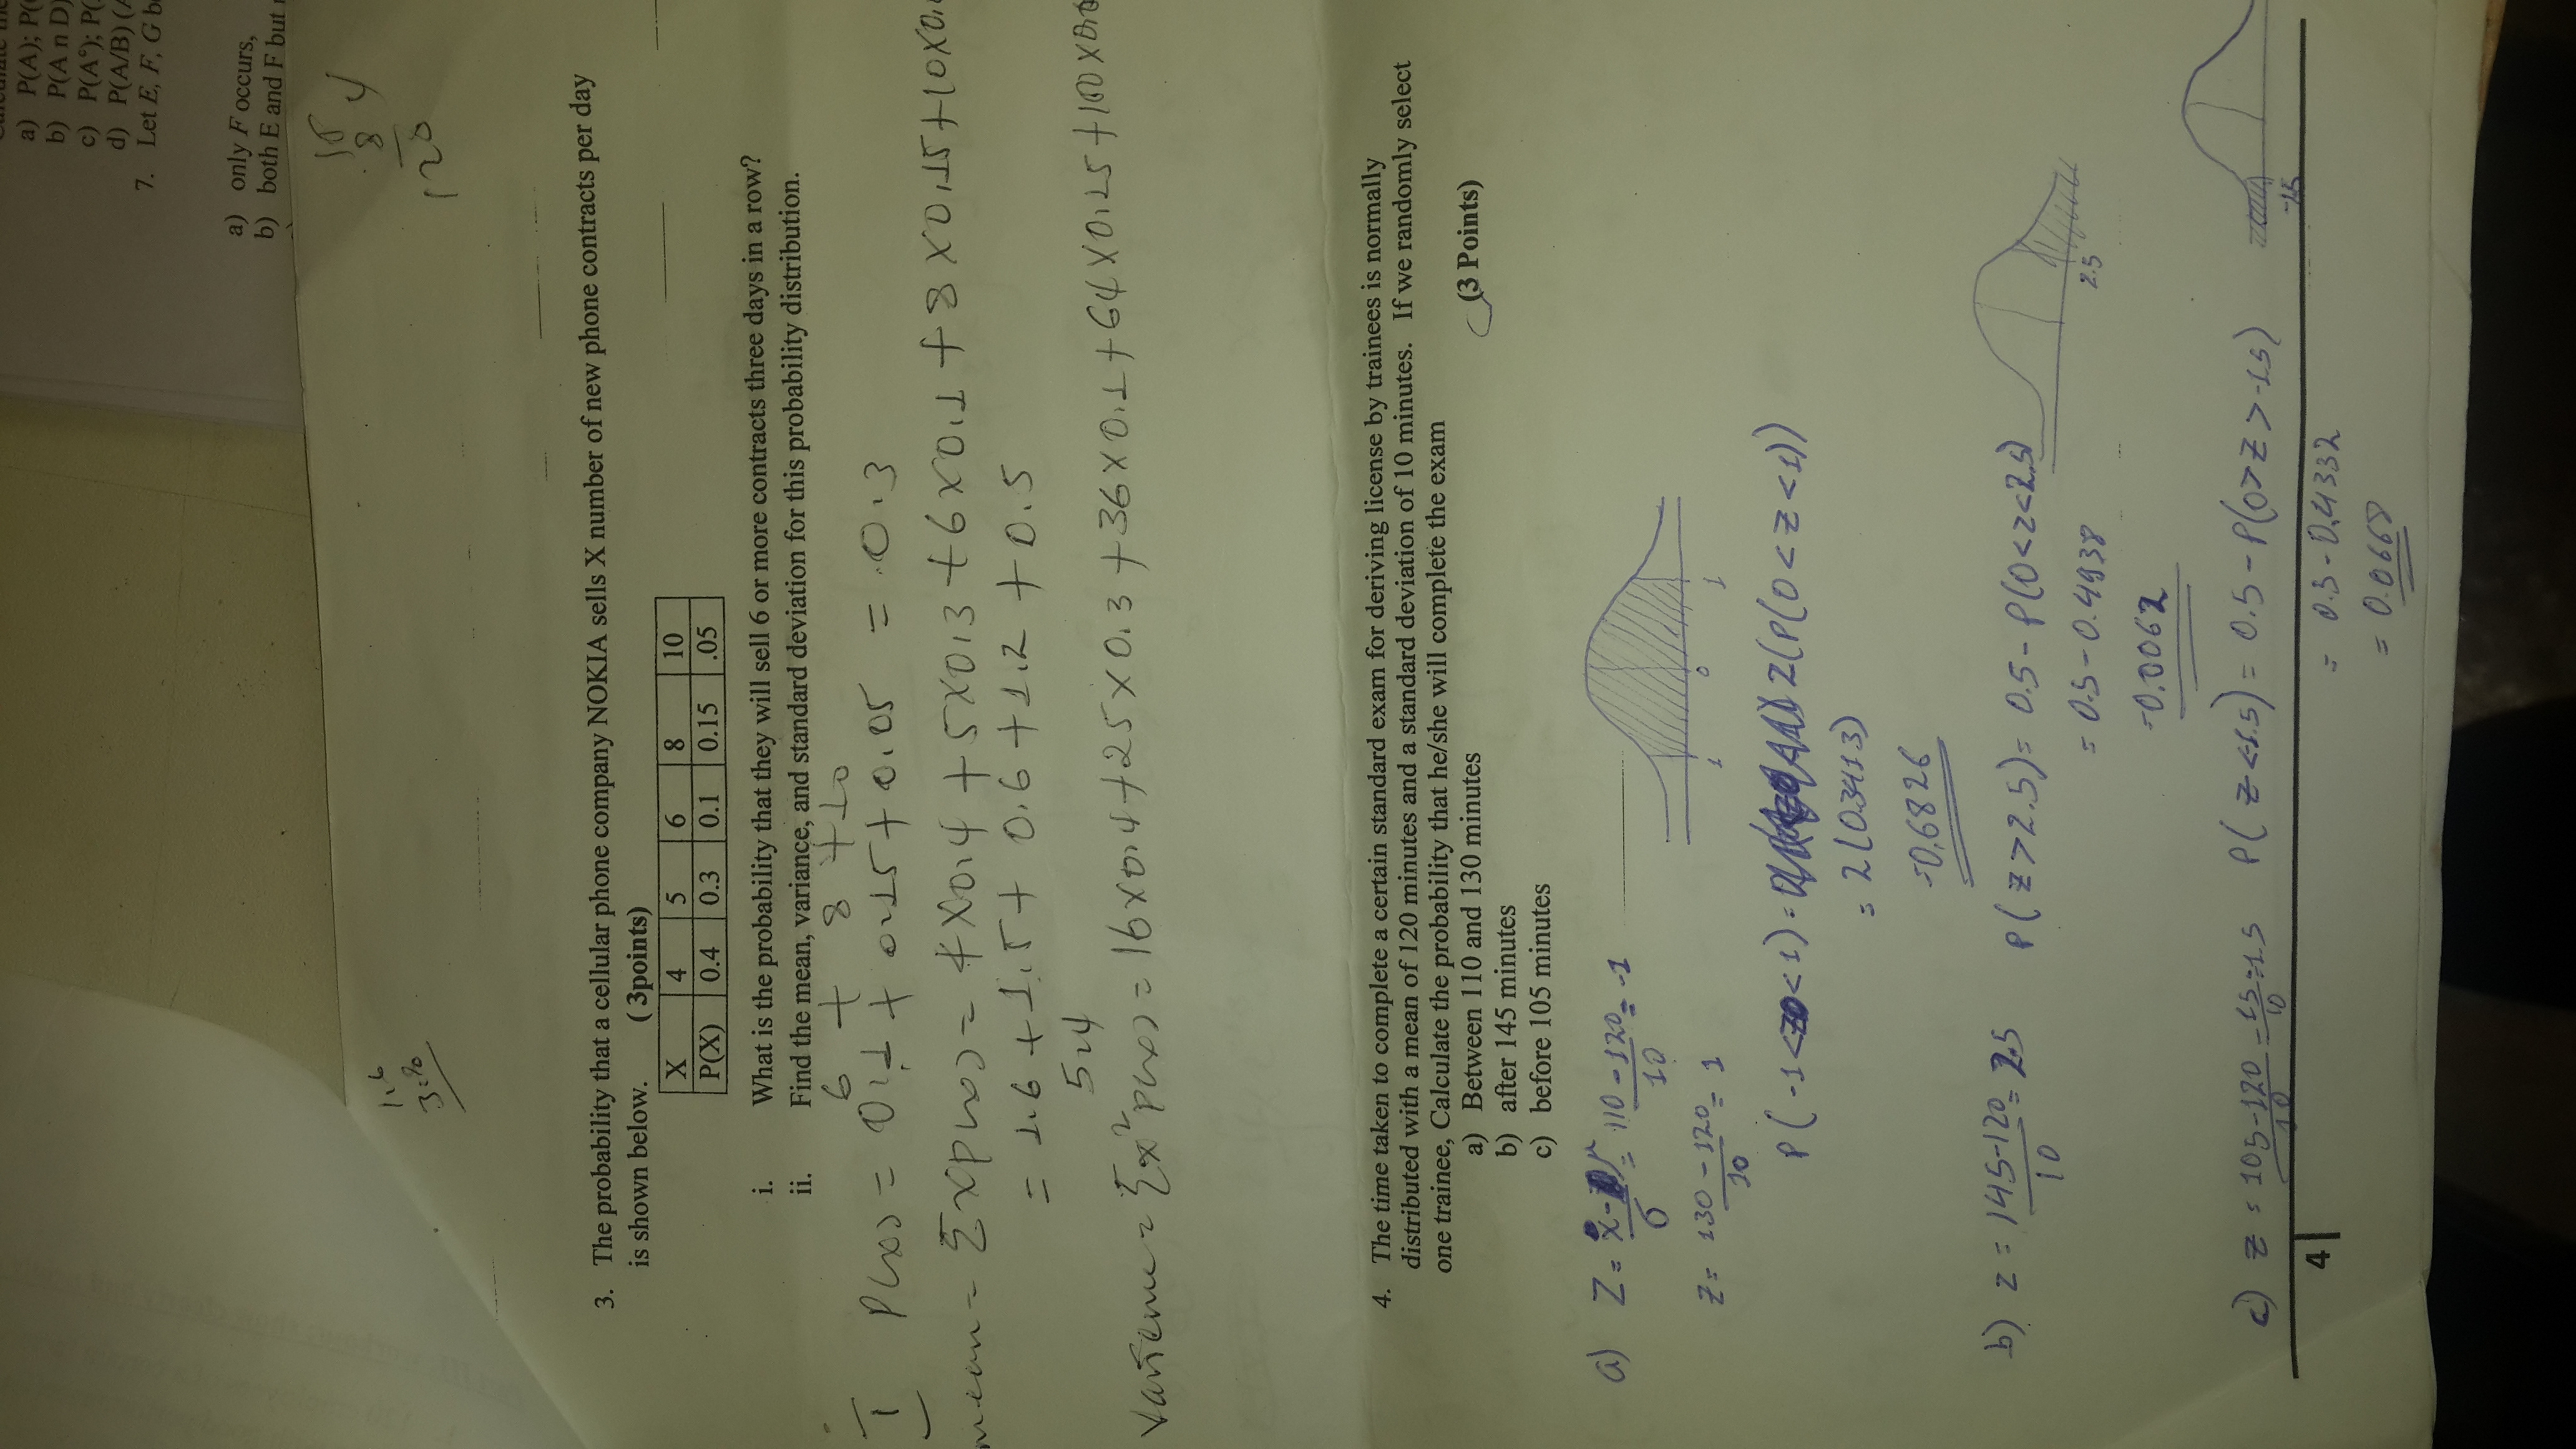 a) P(A); P(
b) P(A n D)
c) P(Aᶜ); P(
d) P(A/B) (
7. Let E, F, G b
a) only F occurs,
b) both E and F but
15
8
120
1.6
3. The probability that a cellular phone company NOKIA sells X number of new phone contracts per day
is shown below. ( 3points)
X 4 5 6 8 10
P(X) 0.4 0.3 0.1 0.15 .05
i. What is the probability that they will sell 6 or more contracts three days in a row?
ii. Find the mean, variance, and standard deviation for this probability distribution.
6 + 8 + 10
I P(x) = 0.1 + 0.15 + 0.05 = 0.3
mean = ΣxP(x) = 4X0.4 + 5X0.3 + 6X0.1 + 8X0.15 + 10X0.
= 1.6 + 1.5 + 0.6 + 1.2 + 0.5
5.4
= Σx²P(x) = 16X0.4 + 25X0.3 + 36X0.1 + 64X0.15 + 100X0.0
4. The time taken to complete a certain standard exam for deriving license by trainees is normally
distributed with a mean of 120 minutes and a standard deviation of 10 minutes. If we randomly select
one trainee, Calculate the probability that he/she will complete the exam
a) Between 110 and 130 minutes (3 Points)
b) after 145 minutes
c) before 105 minutes
a) Z = x-μ/σ = 110-120/10 = -1
1 0 1
Z = 130-120/10 = 1
P(-1<z<1) = 2(P(0<z<1))
= 2(0.3413)
=0.6826
b) z = 145-120/10 = 2.5 P(z>2.5) = 0.5-P(0<z<2.5)
2.5
= 0.5-0.4938
=0.0062
c) z = 105-120/10 = -15/10 = -1.5 P(z<-1.5) = 0.5-P(0>z>-1.5)
-1.5
4
= 0.5-0.4332
= 0.0668